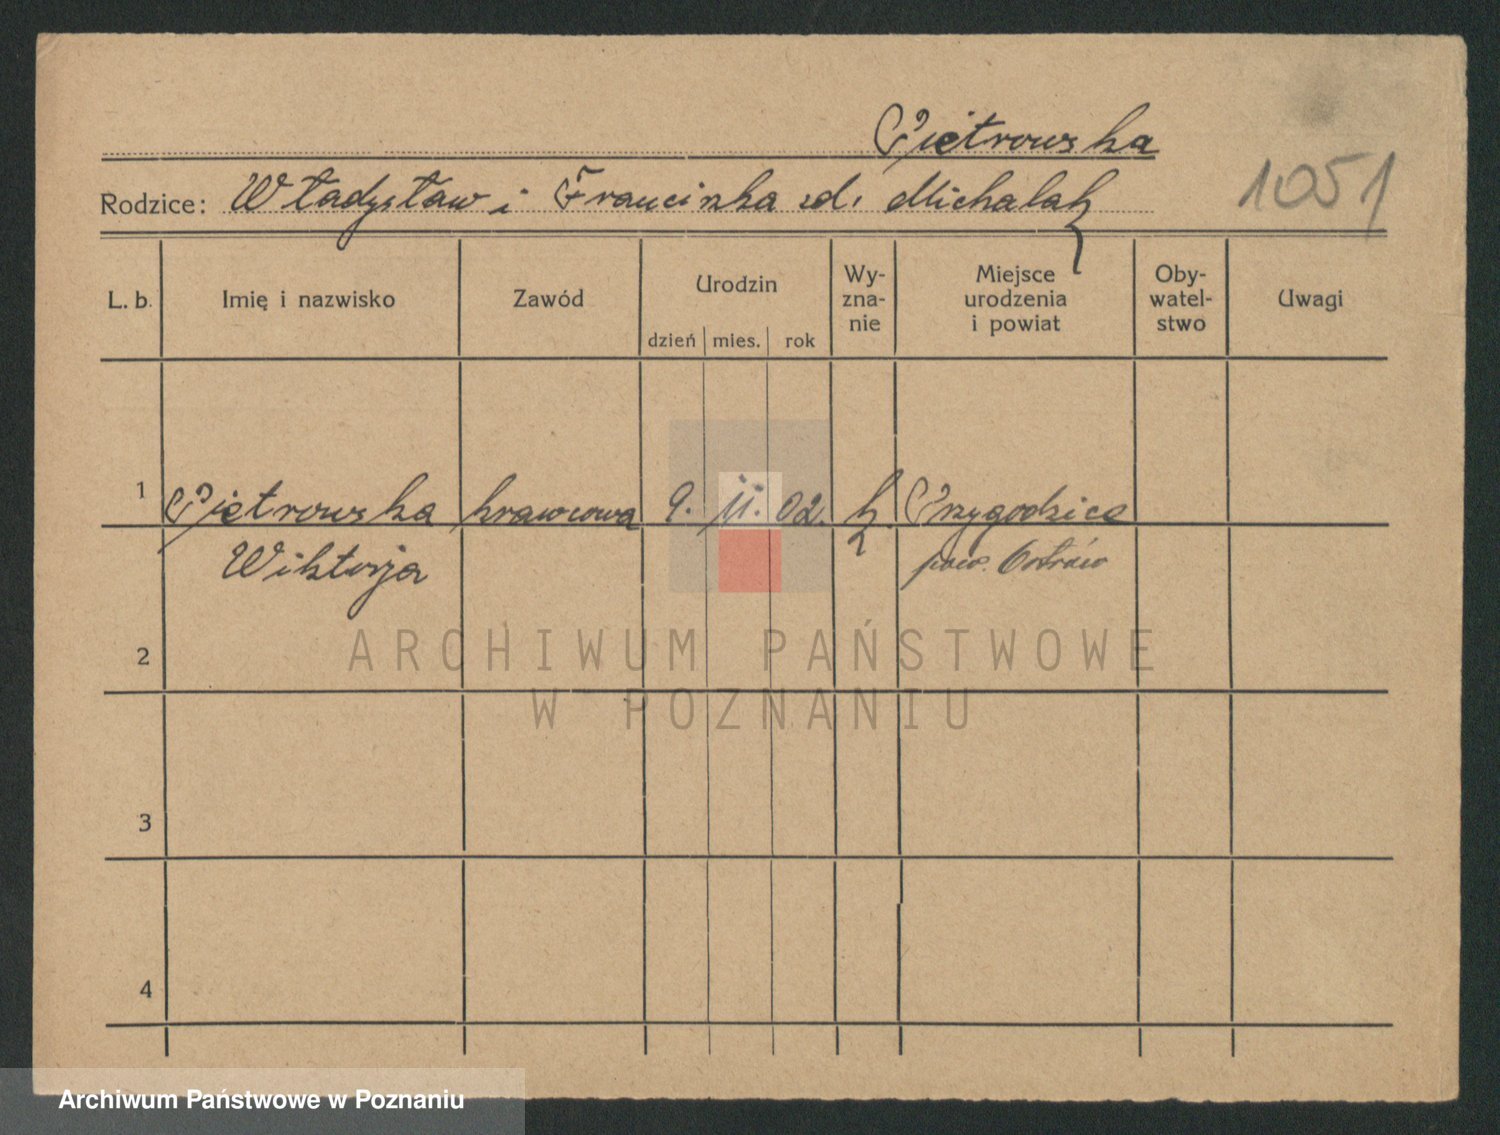 Pietrowska
Rodzice: Władysław i Franciszka zd. Michalak
1051
L. b. Imię i nazwisko Zawód Urodzin Wy-zna-nie Miejsce urodzenia i powiat Oby-watel-stwo Uwagi
dzień mies. rok
1 Pietrowska krawcowa 9. 11. 02. k. Przygodzice
Wiktorja pow. Ostrów
2
ARCHIWUM PAŃSTWOWE
W POZNANIU
3
4
Archiwum Państwowe w Poznaniu